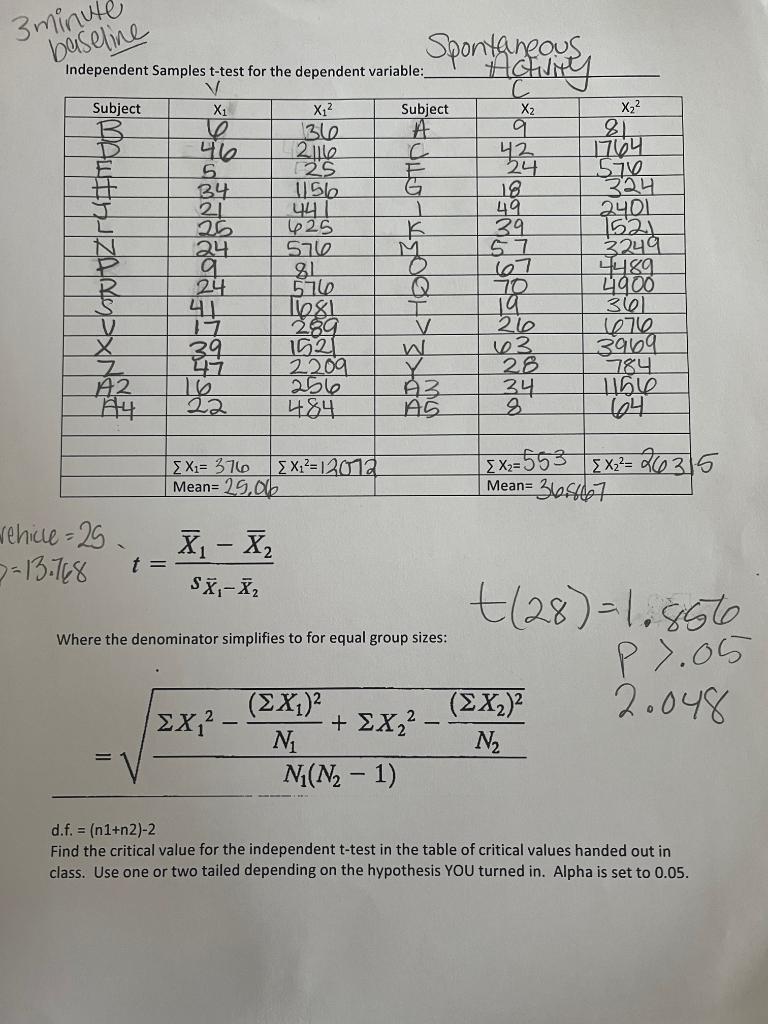 3 minute
baseline
Spontaneous
Independent Samples t-test for the dependent variable: Activity
V C
Subject X₁ X₁² Subject X₂ X₂²
B 6 36 A 9 81
D 46 2116 C 42 1764
E 5 25 F 24 576
H 34 1156 G 18 324
J 21 441 I 49 2401
L 25 625 K 39 1521
N 24 576 M 57 3249
P 9 81 O 67 4489
R 24 576 Q 70 4900
S 41 1681 T 19 361
U 17 289 V 26 676
X 39 1521 W 63 3969
Z 47 2209 Y 28 784
A2 16 256 A3 34 1156
A4 22 484 A5 8 64
Σ X₁= 376 Σ X₁²= 12072 Σ X₂= 553 Σ X₂²= 26315
Mean= 25.06 Mean= 36.8667
vehicle = 25
=13.768
t = X̅₁ − X̅₂ / s X̅₁−X̅₂
t(28)=1.856
Where the denominator simplifies to for equal group sizes:
p >.05
2.048
= √ ΣX₁² − (ΣX₁)² / N₁ + ΣX₂² − (ΣX₂)² / N₂
N₁(N₂ − 1)
d.f. = (n1+n2)-2
Find the critical value for the independent t-test in the table of critical values handed out in
class. Use one or two tailed depending on the hypothesis YOU turned in. Alpha is set to 0.05.